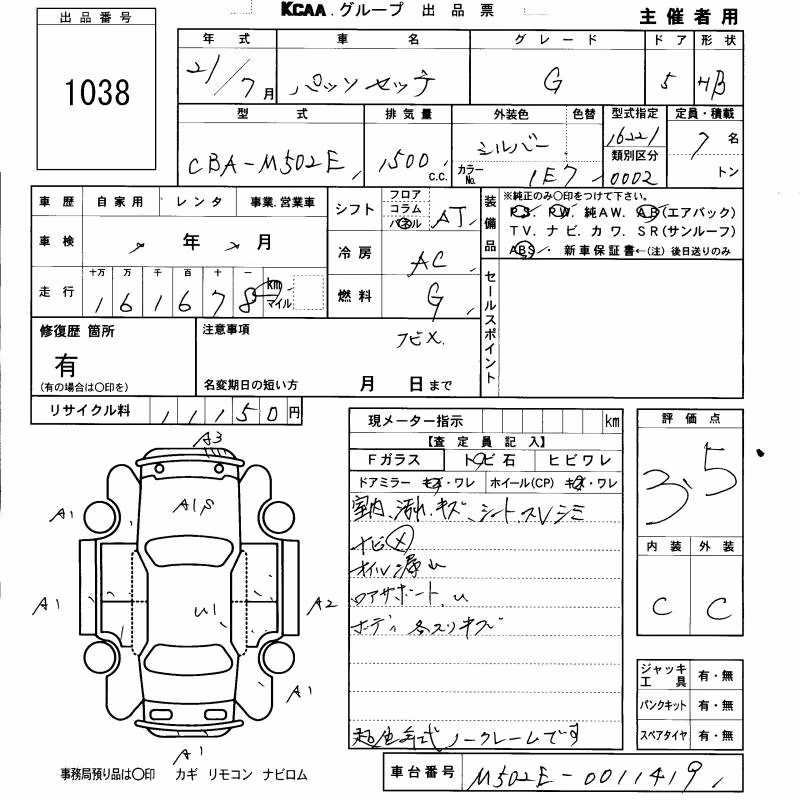 出品番号
1038
KCAA.グループ 出品票
主催者用
年式 車名 グレード ドア 形状
21/7月 パッソセッテ G 5 HB
型式 排気量 外装色 色替 型式指定 定員・積載
CBA-M502E 1500 c.c. シルバー 16221 7名
カラーNo. 1E7 類別区分 0002 トン
車歴 自家用 レンタ 事業.営業車
車検 年 月
走行 十万 万 千 百 十 一
1 6 1 6 7 8 km マイル
シフト フロア コラム パネル AT
冷房 AC
燃料 G
装備品
※純正のみ○印をつけて下さい。
PS. PW. 純AW. AB(エアバック)
TV. ナビ. カワ. SR(サンルーフ)
ABS. 新車保証書←(注) 後日送りのみ
セールスポイント
修復歴 箇所
有
(有の場合は○印を)
注意事項
ナビ×
名変期日の短い方 月 日まで
リサイクル料 11150円
現メーター指示 km
【査定員記入】
Fガラス トビ石 ヒビワレ
ドアミラー キズ・ワレ ホイール(CP) キズ・ワレ
室内汚れ、キズ、シートスレシミ
ナビ×
オイル漏れ
ロアサポート
ボディ 各スリキズ
超低年式ノークレームです
評価点
3.5
内装 外装
C C
ジャッキ工具 有・無
パンクキット 有・無
スペアタイヤ 有・無
A3
A1
A1
A1
U1
A2
A1
A1
事務局預り品は○印 カギ リモコン ナビロム
車台番号 M502E-0011419